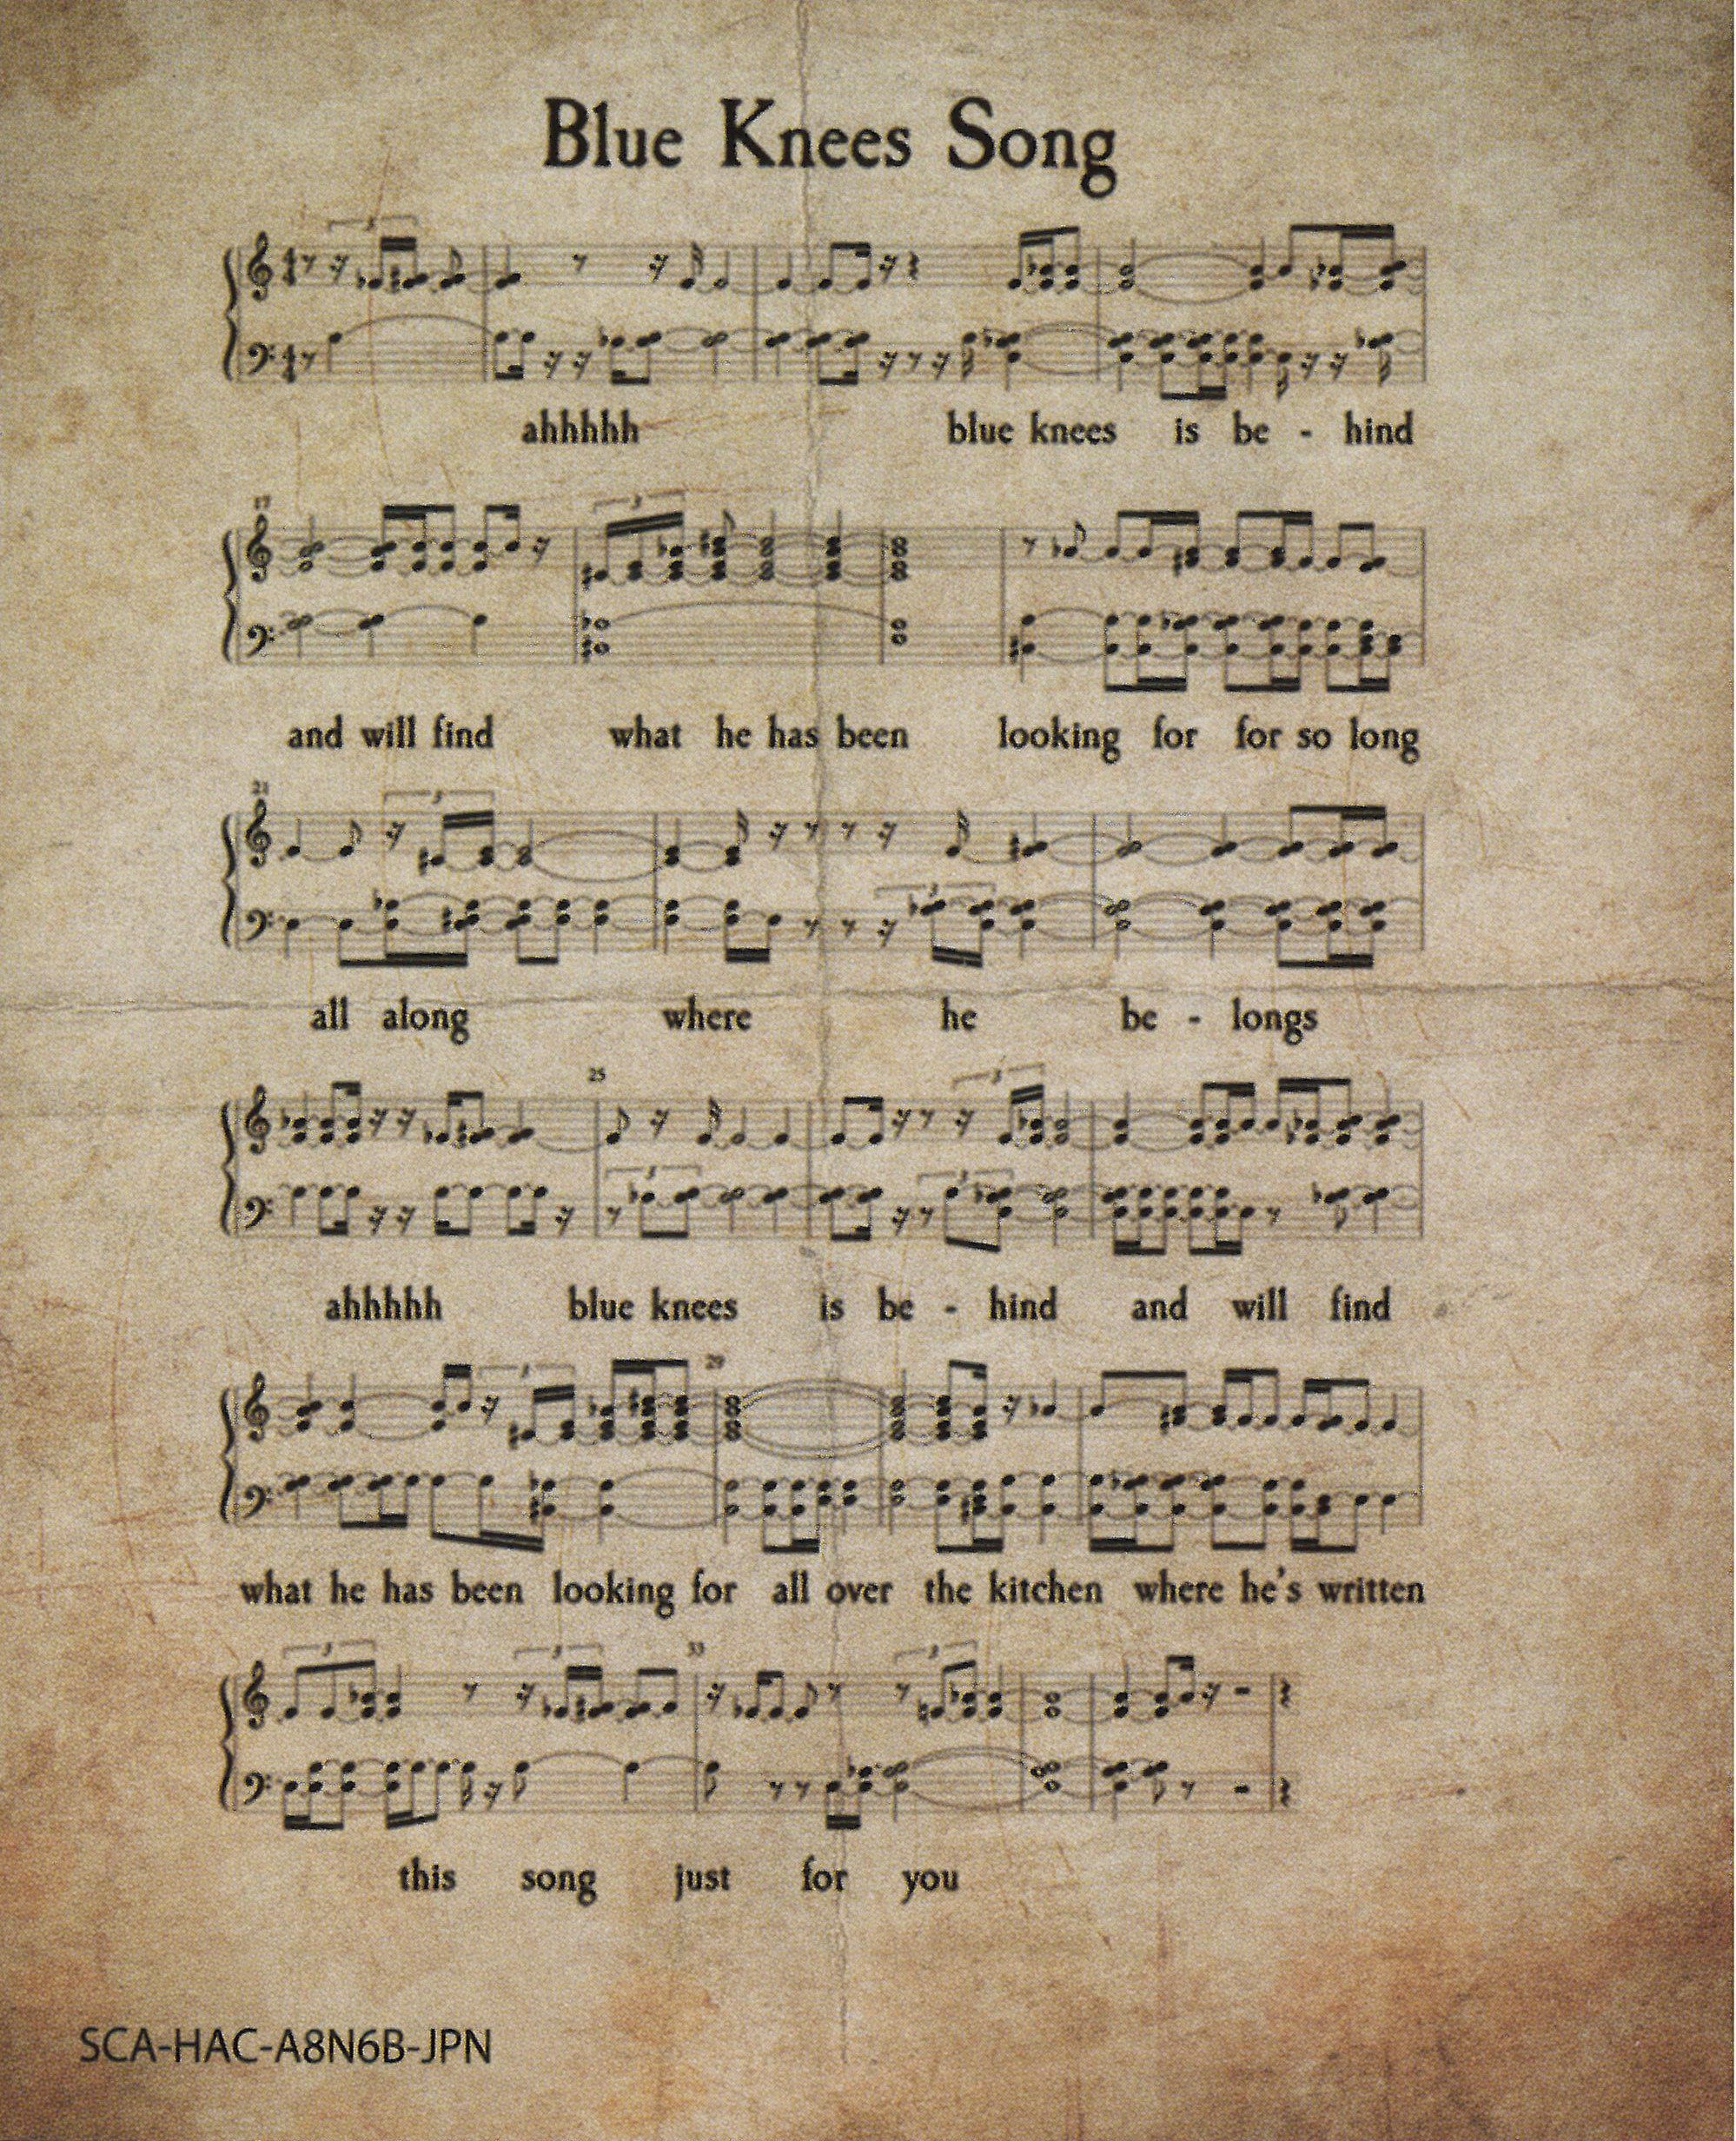 Blue Knees Song
3
ahhhhh blue knees is be - hind
17
3
and will find what he has been looking for for so long
21
3
3
all along where he be - longs
25
3
3
3
ahhhhh blue knees is be - hind and will find
3
29
what he has been looking for all over the kitchen where he's written
3
3
33
3
this song just for you
SCA-HAC-A8N6B-JPN